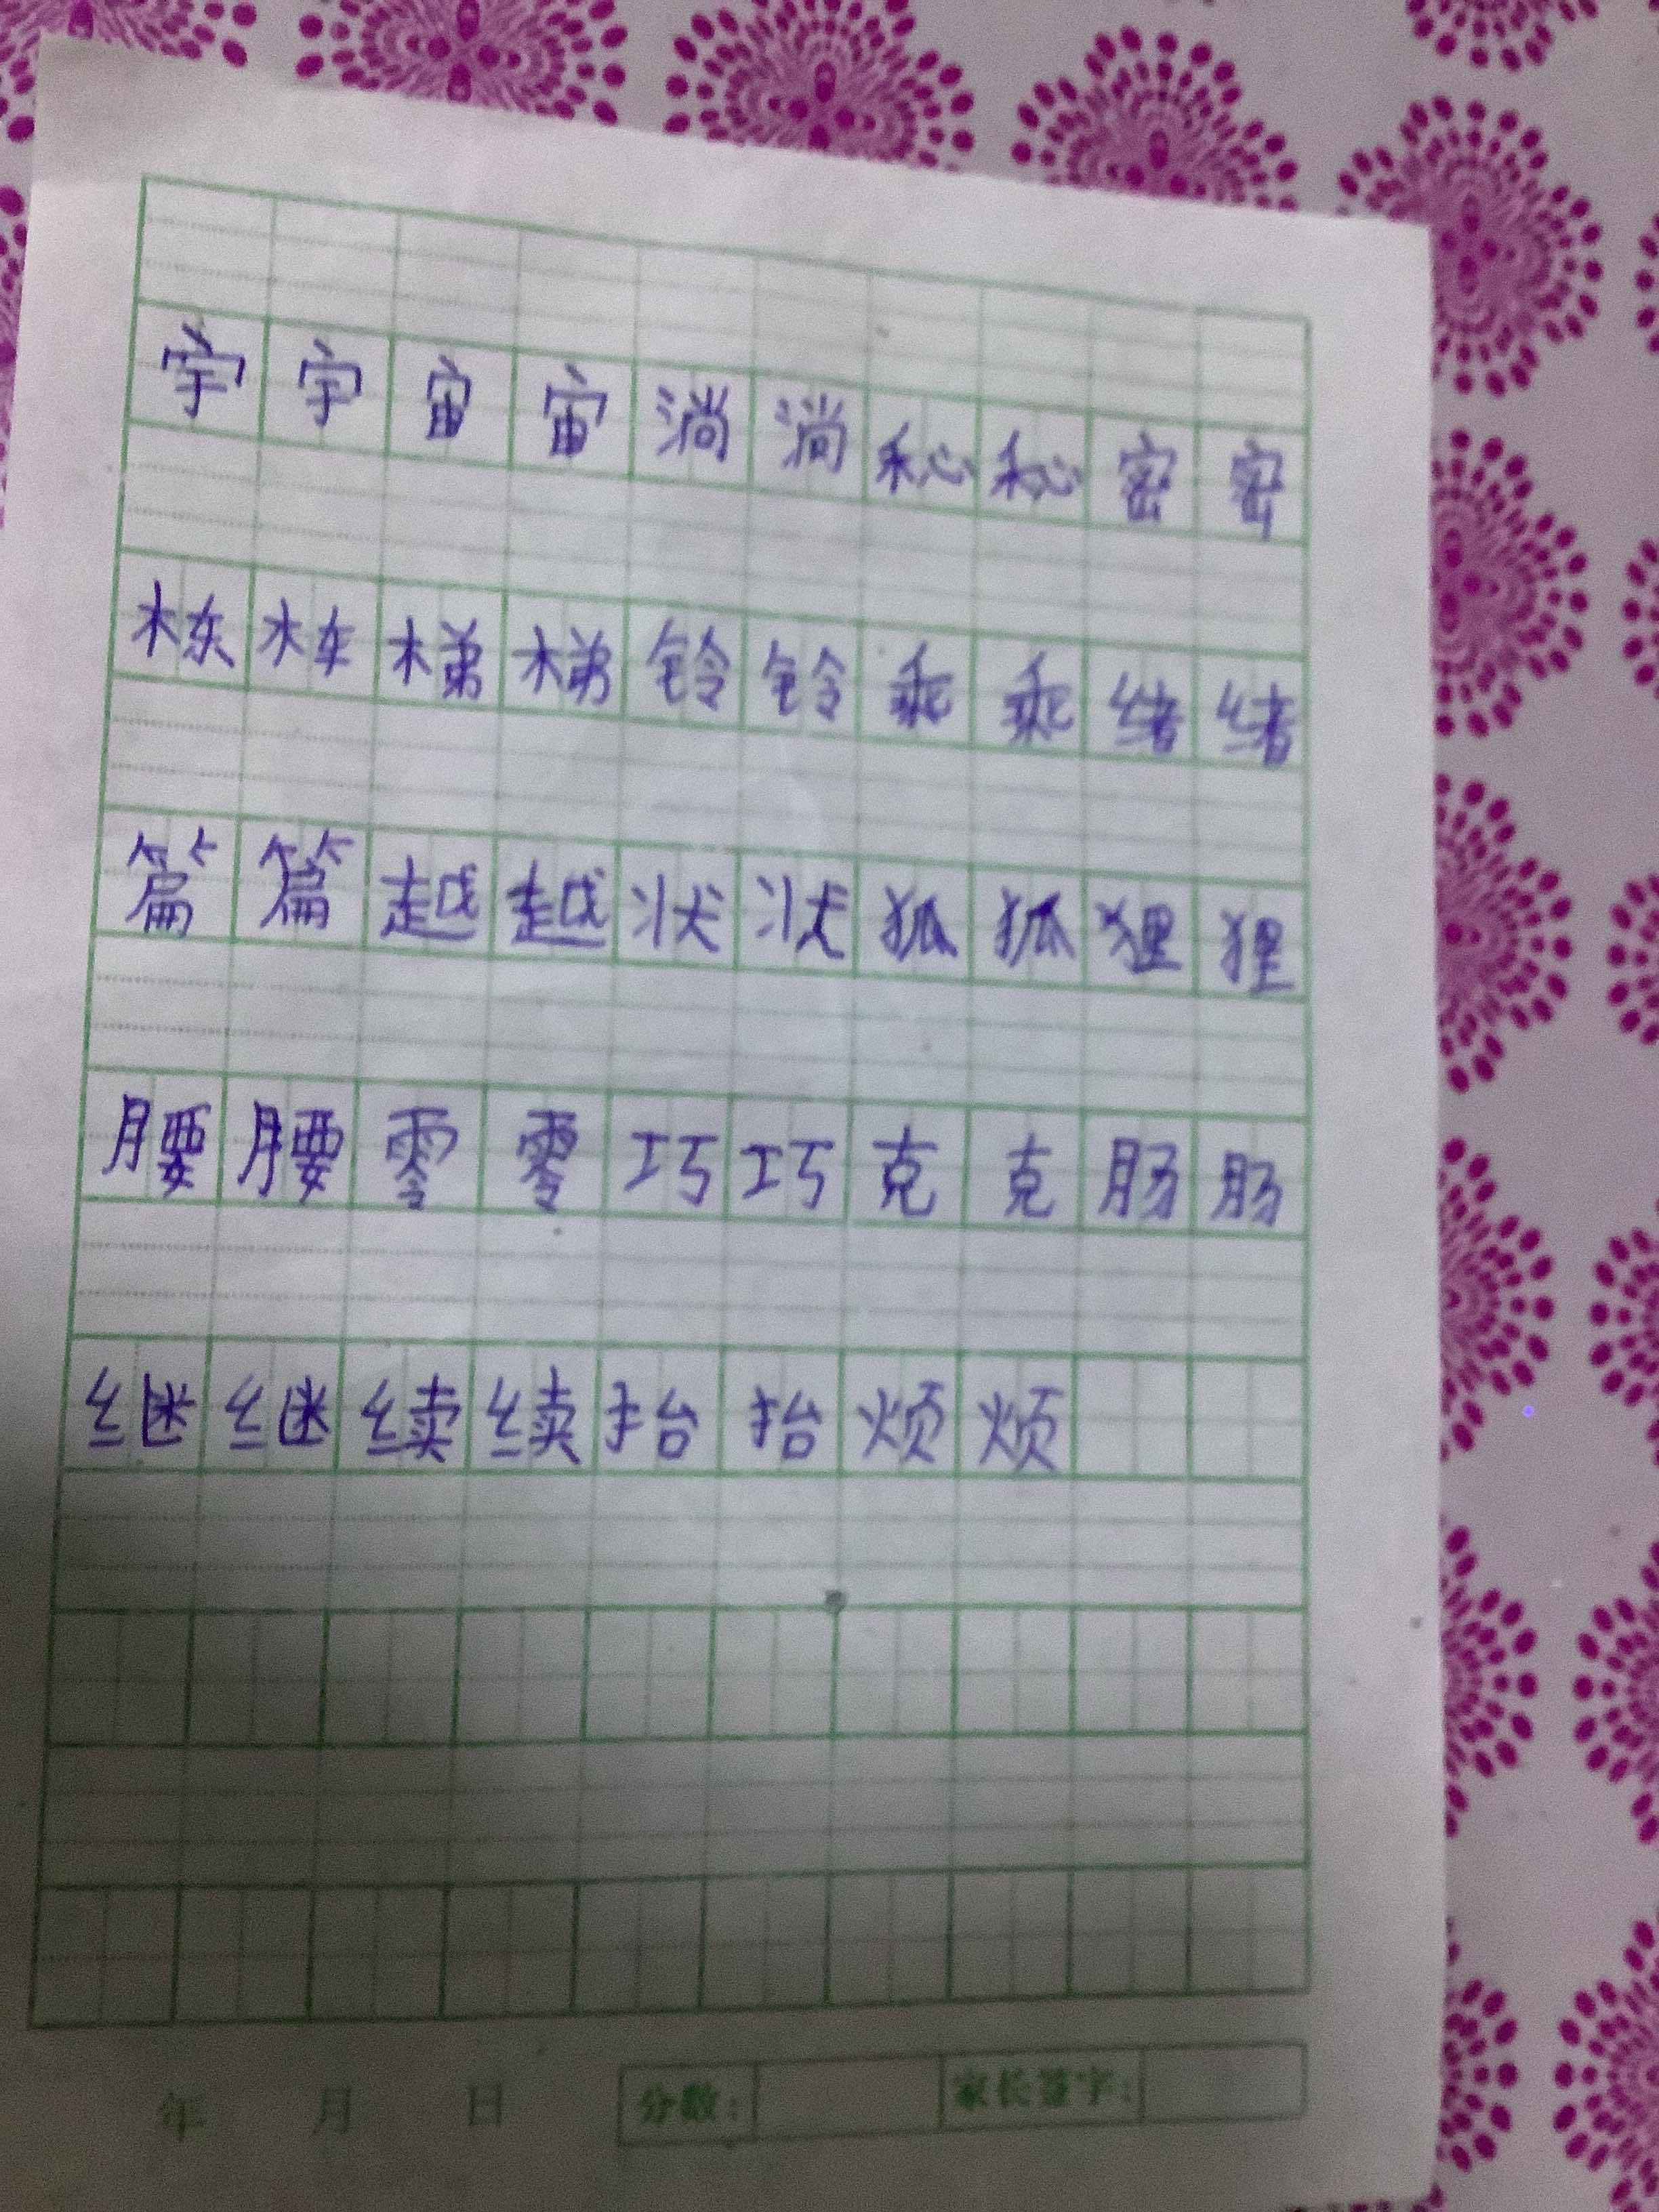 宇宇宙宙淌淌秘秘密密
栋栋梯梯铃铃乘乘绪绪
篇篇越越状状狐狐狸狸
腰腰零零巧巧克克肠肠
继继续续抬抬烦烦
年 月 日 分数: 家长签字: